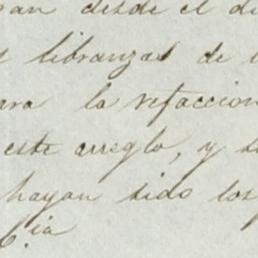 ran desde el di
libranzas de l
ara la refaccion
este arreglo, y s
hayan sido los
C.ia